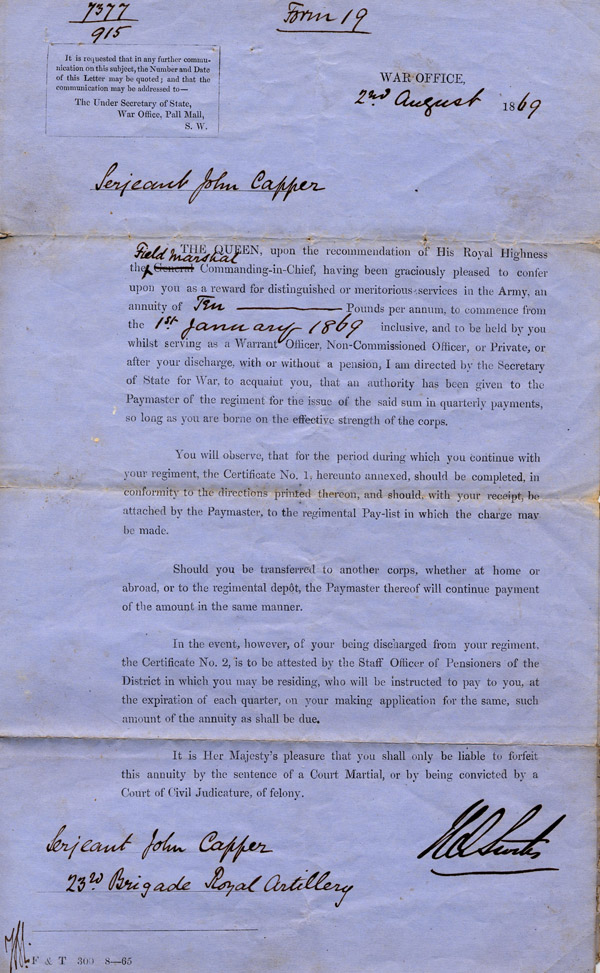 7377 Form 19
915
It is requested that in any further commu-
nication on this subject, the Number and Date
of this Letter may be quoted; and that the
communication may be addressed to—
The Under Secretary of State,
War Office, Pall Mall,
S. W.
WAR OFFICE,
2nd August 1869
Serjeant John Capper
THE QUEEN, upon the recommendation of His Royal Highness
Field Marshal
the General Commanding-in-Chief, having been graciously pleased to confer
upon you as a reward for distinguished or meritorious services in the Army, an
annuity of Ten Pounds per annum, to commence from
the 1st January 1869 inclusive, and to be held by you
whilst serving as a Warrant Officer, Non-Commissioned Officer, or Private, or
after your discharge, with or without a pension, I am directed by the Secretary
of State for War, to acquaint you, that an authority has been given to the
Paymaster of the regiment for the issue of the said sum in quarterly payments,
so long as you are borne on the effective strength of the corps.
You will observe, that for the period during which you continue with
your regiment, the Certificate No. 1, hereunto annexed, should be completed, in
conformity to the directions printed thereon, and should, with your receipt, be
attached by the Paymaster, to the regimental Pay-list in which the charge may
be made.
Should you be transferred to another corps, whether at home or
abroad, or to the regimental depôt, the Paymaster thereof will continue payment
of the amount in the same manner.
In the event, however, of your being discharged from your regiment,
the Certificate No. 2, is to be attested by the Staff Officer of Pensioners of the
District in which you may be residing, who will be instructed to pay to you, at
the expiration of each quarter, on your making application for the same, such
amount of the annuity as shall be due.
It is Her Majesty's pleasure that you shall only be liable to forfeit
this annuity by the sentence of a Court Martial, or by being convicted by a
Court of Civil Judicature, of felony.
Serjeant John Capper
23rd Brigade Royal Artillery
F & T 300 8—65